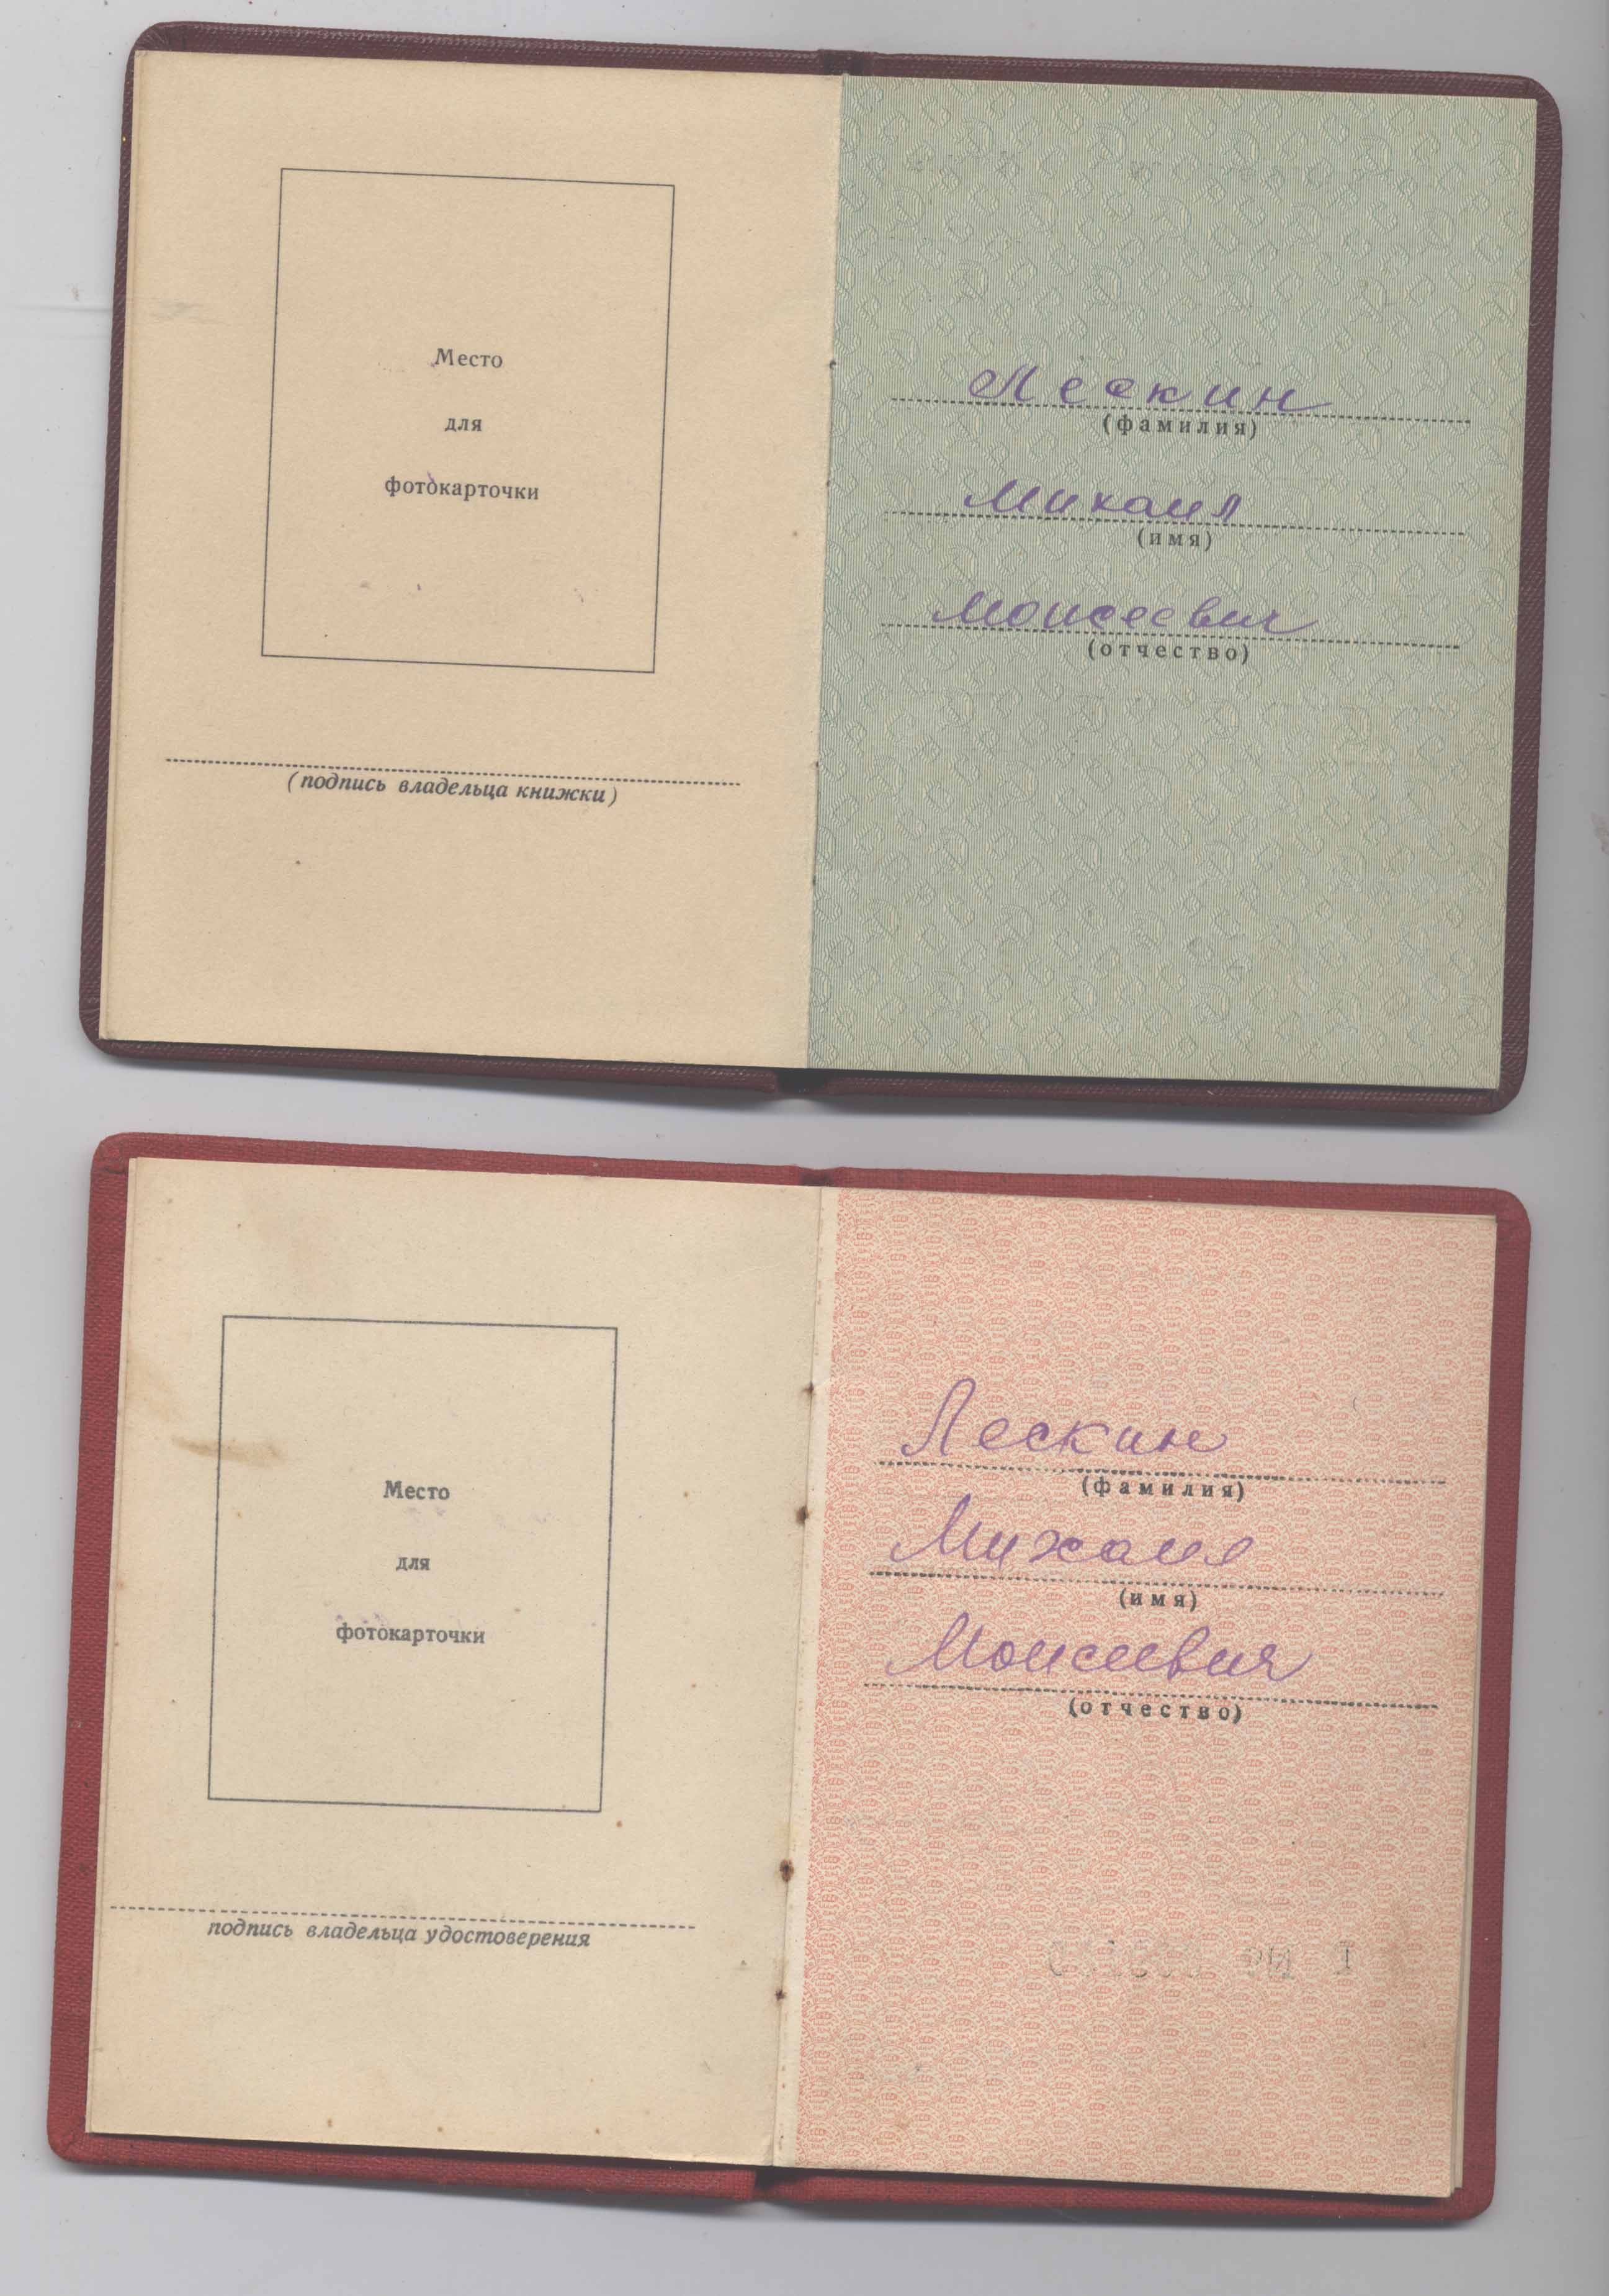 Место
для
фотокарточки
(подпись владельца книжки)
Лескин
(фамилия)
Михаил
(имя)
Моисеевич
(отчество)
Место
для
фотокарточки
подпись владельца удостоверения
Лескин
(фамилия)
Михаил
(имя)
Моисеевич
(отчество)